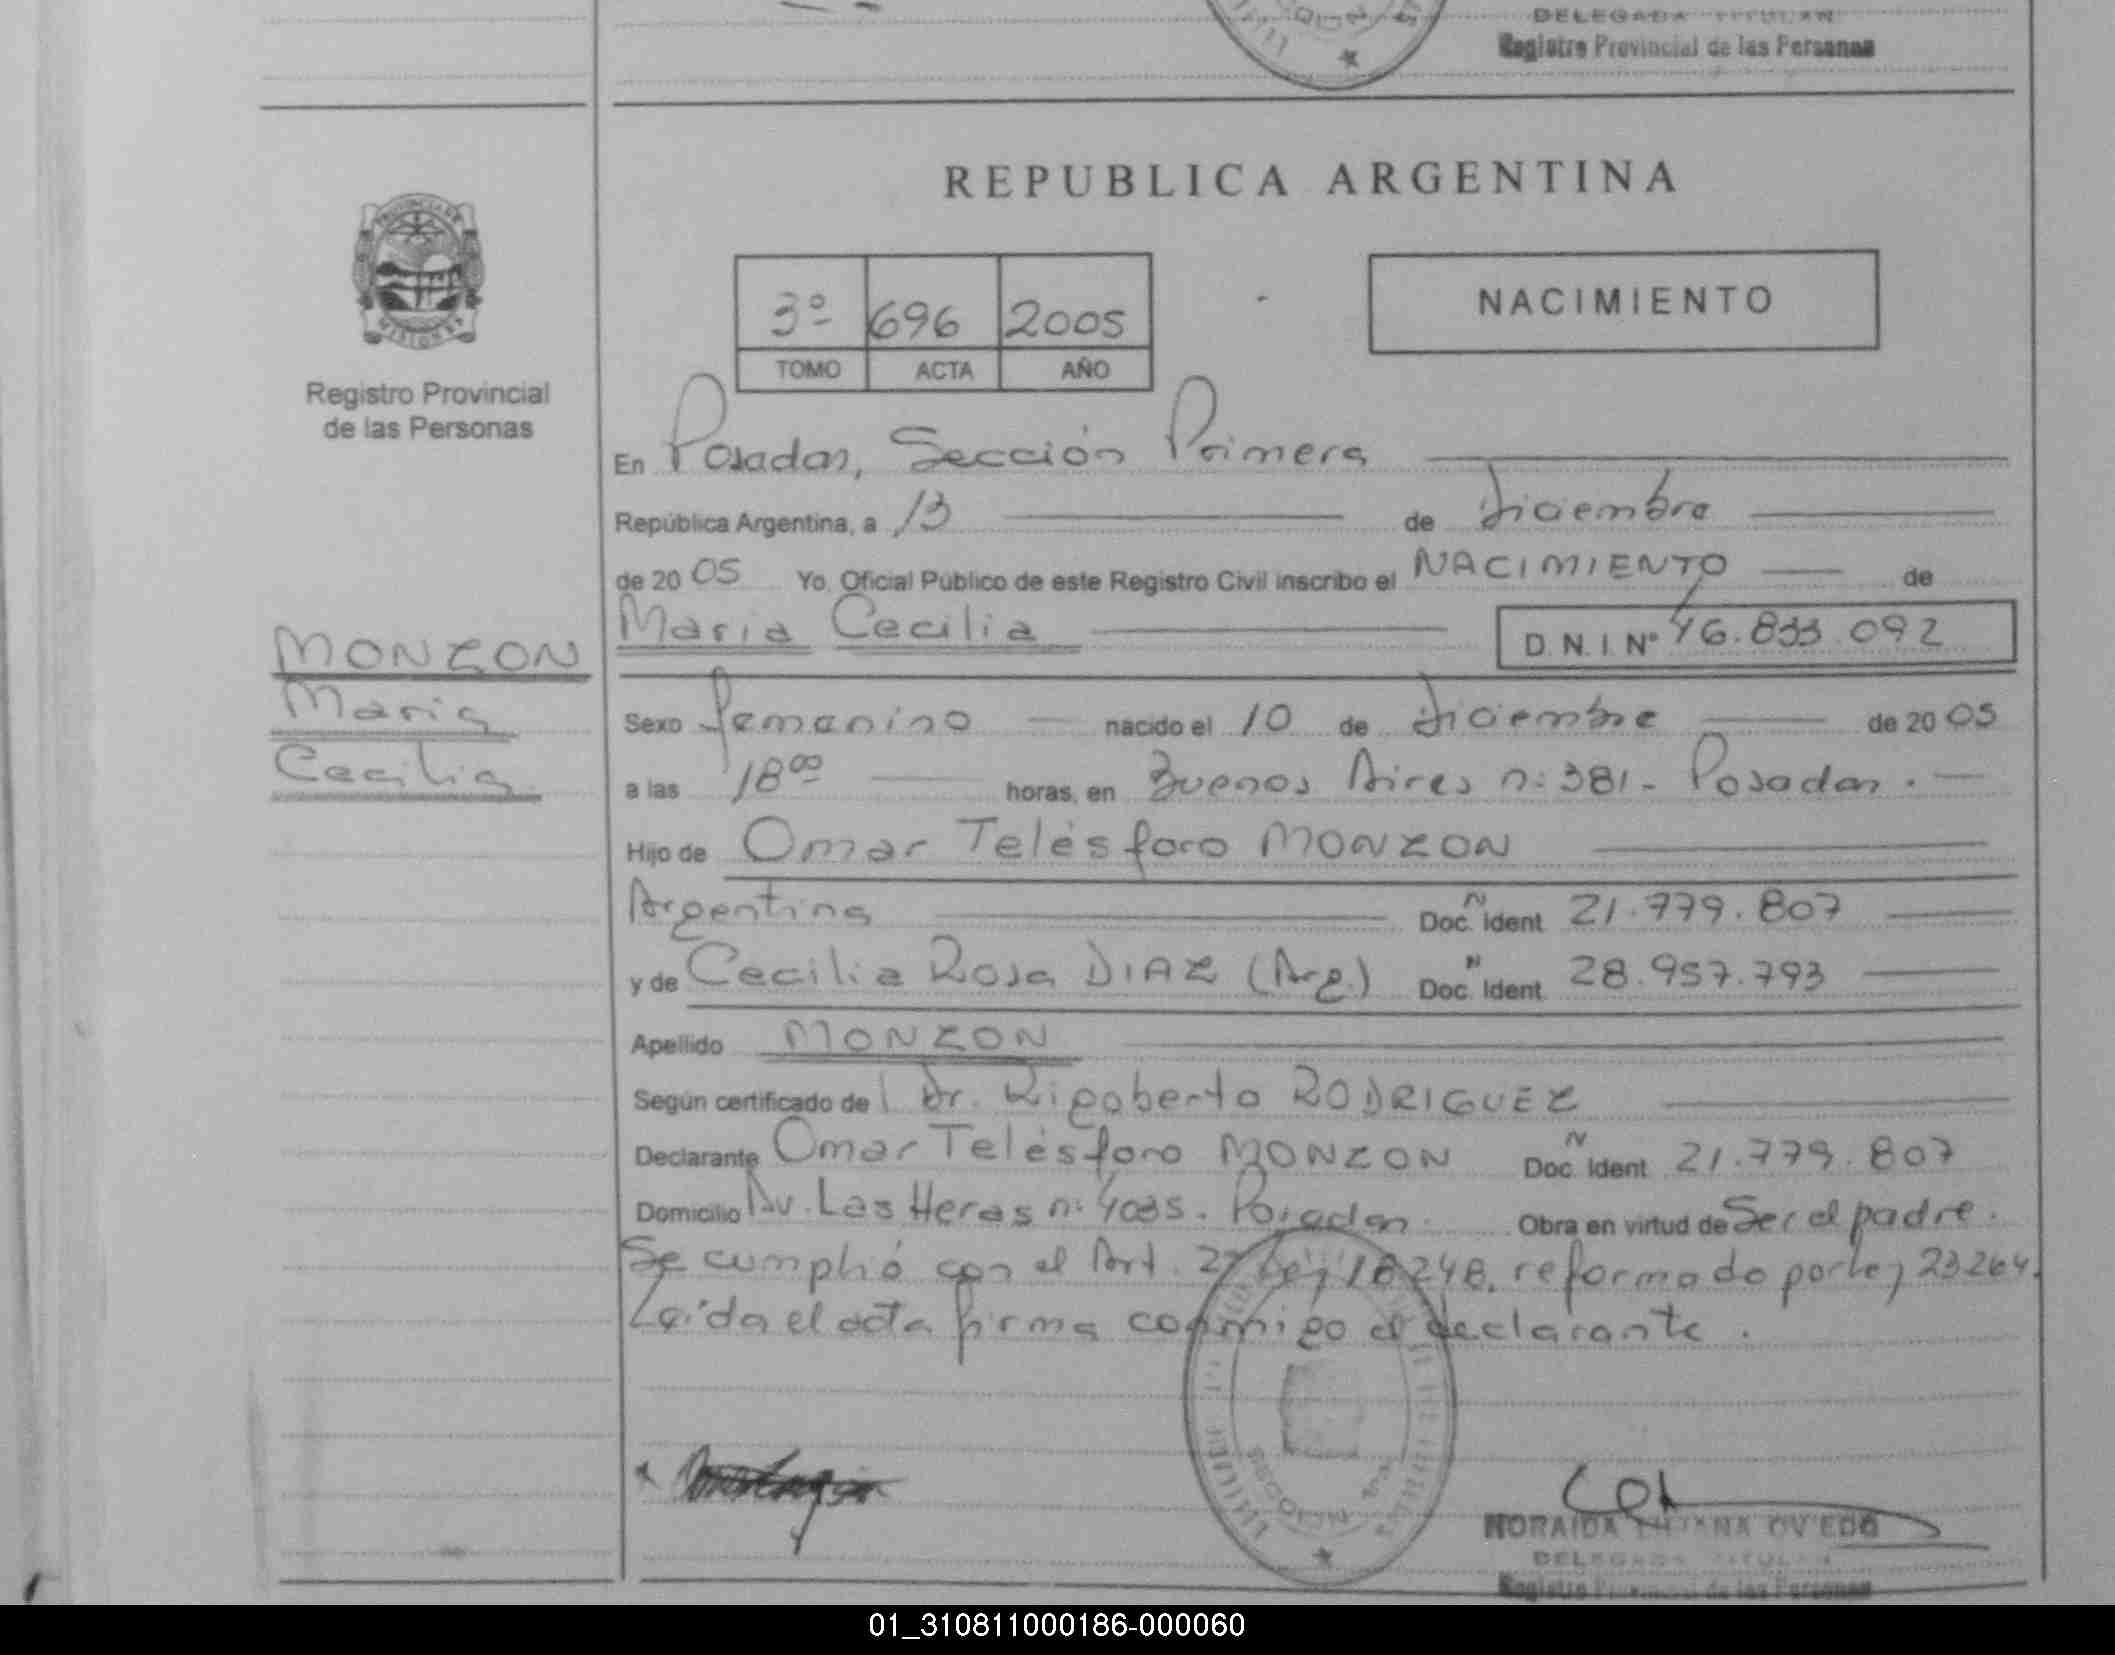 DELEGADA TITULAR
Registro Provincial de las Personas
REPUBLICA ARGENTINA
PROVINCIA DE
MISIONES
Registro Provincial
de las Personas
3º 696 2005
TOMO ACTA AÑO
NACIMIENTO
En Posadas, Sección Primera
República Argentina, a 13 de Diciembre
de 20 05 Yo, Oficial Público de este Registro Civil inscribo el NACIMIENTO de
María Cecilia D.N.I. Nº 46.833.092
MONZON
María
Cecilia
Sexo femenino nacido el 10 de Diciembre de 20 05
a las 18⁰⁰ horas, en Buenos Aires n: 381 - Posadas.
Hijo de Omar Telésforo MONZON
Argentina Doc. Ident N 21.779.807
y de Cecilia Rosa DIAZ (Arg.) Doc. Ident N 28.957.793
Apellido MONZON
Según certificado de l Dr. Rigoberto RODRIGUEZ
Declarante Omar Telésforo MONZON Doc. Ident N 21.779.807
Domicilio Av. Las Heras n: 4035. Posadas. Obra en virtud de Ser el padre.
Se cumplió con el Art. 2º Ley 18248, reformado por ley 23264.
Leída el acta firma conmigo el declarante.
NORAIDA LILIANA OVIEDO
DELEGADA TITULAR
Registro Provincial de las Personas
01_310811000186-000060